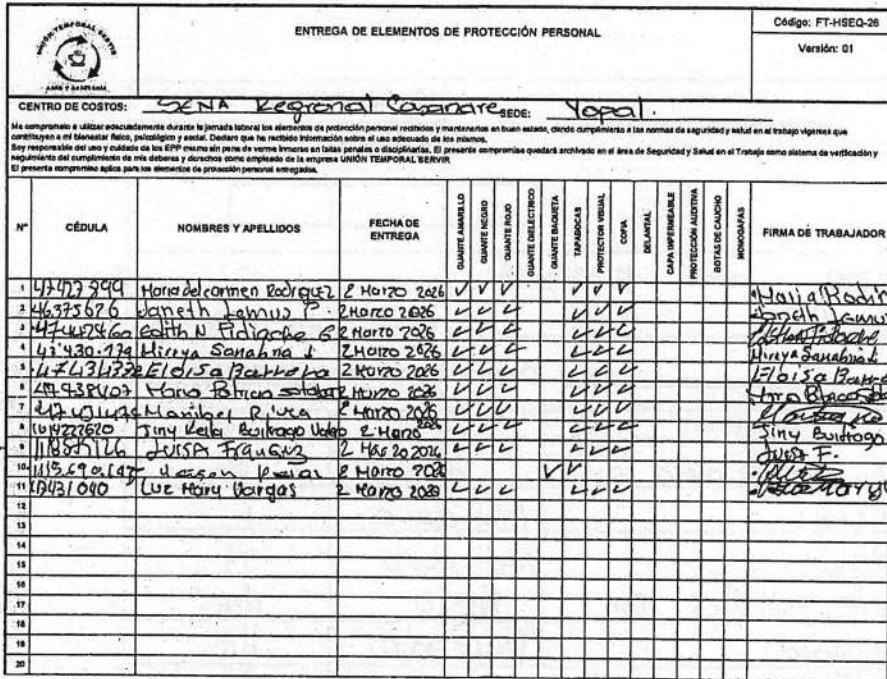 UNIÓN TEMPORAL SERVIR
ASEO Y CAFETERÍA
ENTREGA DE ELEMENTOS DE PROTECCIÓN PERSONAL
Código: FT-HSEQ-26
Versión: 01
CENTRO DE COSTOS: SENA Regional Casanare SEDE: Yopal.
Me comprometo a utilizar adecuadamente durante la jornada laboral los elementos de protección personal recibidos y mantenerlos en buen estado, dando cumplimiento a las normas de seguridad y salud en el trabajo vigentes que
contribuyen a mi bienestar físico, psicológico y social. Declaro que he recibido información sobre el uso adecuado de los mismos.
Soy responsable del uso y cuidado de los EPP mismo sin pena de verme inmerso en faltas penales o disciplinarias. El presente compromiso quedará archivado en el área de Seguridad y Salud en el Trabajo como sistema de verificación y
seguimiento del cumplimiento de mis deberes y derechos como empleado de la empresa UNIÓN TEMPORAL SERVIR
El presente compromiso aplica para los elementos de protección personal entregados.
N° CÉDULA NOMBRES Y APELLIDOS FECHA DE ENTREGA GUANTE AMARILLO GUANTE NEGRO GUANTE ROJO GUANTE DIELECTRICO GUANTE BAQUETA TAPABOCAS PROTECTOR VISUAL COFIA DELANTAL CAPA IMPERMEABLE PROTECCIÓN AUDITIVA BOTAS DE CAUCHO MONOGAFAS FIRMA DE TRABAJADOR
1 47427899 Maria del carmen Rodriguez 2 Marzo 2026 ✓ ✓ ✓ ✓ ✓ ✓ Maria Rodri
2 46375676 Janeth Lemus P. 2 Marzo 2026 ✓ ✓ ✓ ✓ ✓ ✓ Janeth Lemus
3 Edith N 2 Marzo 2026 ✓ ✓ ✓ ✓ ✓ ✓
4 47'430.179 Mireya Sanabria 2 Marzo 2026 ✓ ✓ ✓ ✓ ✓ ✓ Mireya Sanabria
5 Eloisa Barrera 2 Marzo 2026 ✓ ✓ ✓ ✓ ✓ ✓ Eloisa Barre
6 47438407 Maria Patricia 2 Marzo 2026 ✓ ✓ ✓ ✓ ✓ ✓
7 Maribel Rivera 2 Marzo 2026 ✓ ✓ ✓ ✓ ✓ ✓
8 Jiny Keila Buitrago 2 Marzo 2026 ✓ ✓ ✓ ✓ ✓ ✓ Jiny Buitrago
9 LUISA 2 2026 ✓ ✓ ✓ ✓ ✓ ✓ LUISA F.
10 2 Marzo 2026 ✓ ✓
11 Luz Mary Vargas 2 Marzo 2026 ✓ ✓ ✓ ✓ ✓ ✓
12
13
14
15
16
17
18
19
20